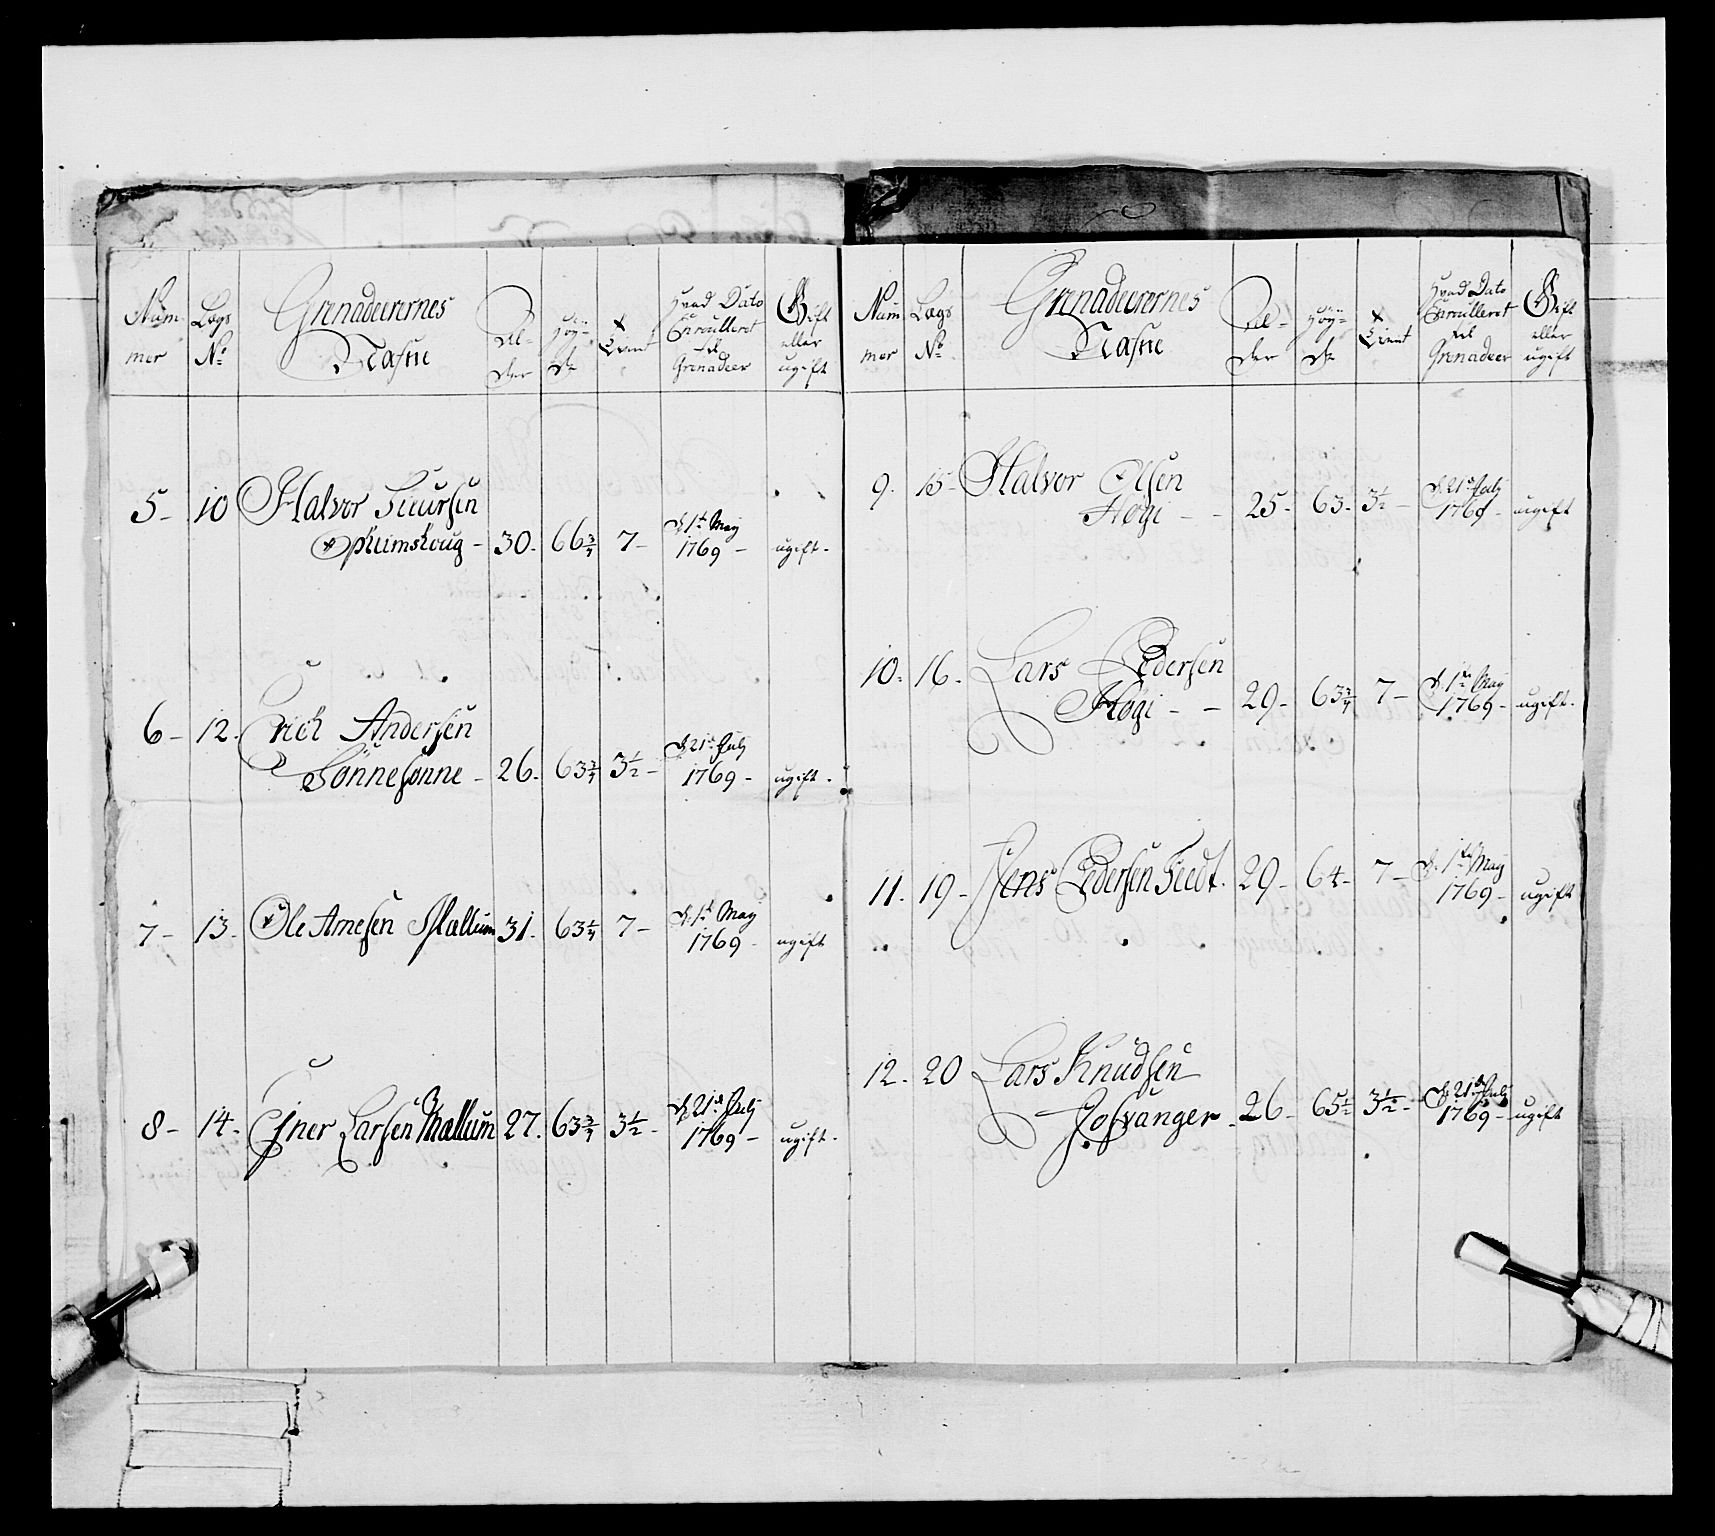 Num
mer
Lægs
No
Grenadeurernes
Nafne
Al-
der
Høy-
de
Tient
Hvad Dato
Enroulleret
til
Grenadeer
Gift
eller
ugift
5- 10 Halvor Siursen
30. 66 3/4 7- d. 1t May
1769- ugift.
6- 12. Erich Andersen
Sönnesönne - 26. 63 3/4 3 1/2 - d. 21d July
1769- ugift.
7- 13. Ole Arnesen Mællum 31. 63 1/4 7- d. 1t May
1769- ugift
8- 14. Ejner Larsen Mællum 27. 63 3/4 3 1/2 - d. 21d July
1769- ugift.
Num
mer
Lægs
No
Grenadeurernes
Nafne
Al-
der
Høy-
de
Tient
Hvad Dato
Enroulleret
til
Grenadeer
Gift
eller
ugift
9. 15- Halvor Olsen
Høgi - - 25- 63- 3 1/2 - d. 21d July
1769- ugift
10. 16. Lars Pedersen
Høgi - - 29- 63 3/4 7- d. 1t May
1769- ugift.
11. 19- Jens Pedersen Tvedt. 29- 64- 7- d. 1t May
1769- ugift
12. 20 Lars Knudsen
Josvanger - 26- 65 1/2 3 1/2 - d. 21d July
1769- ugift